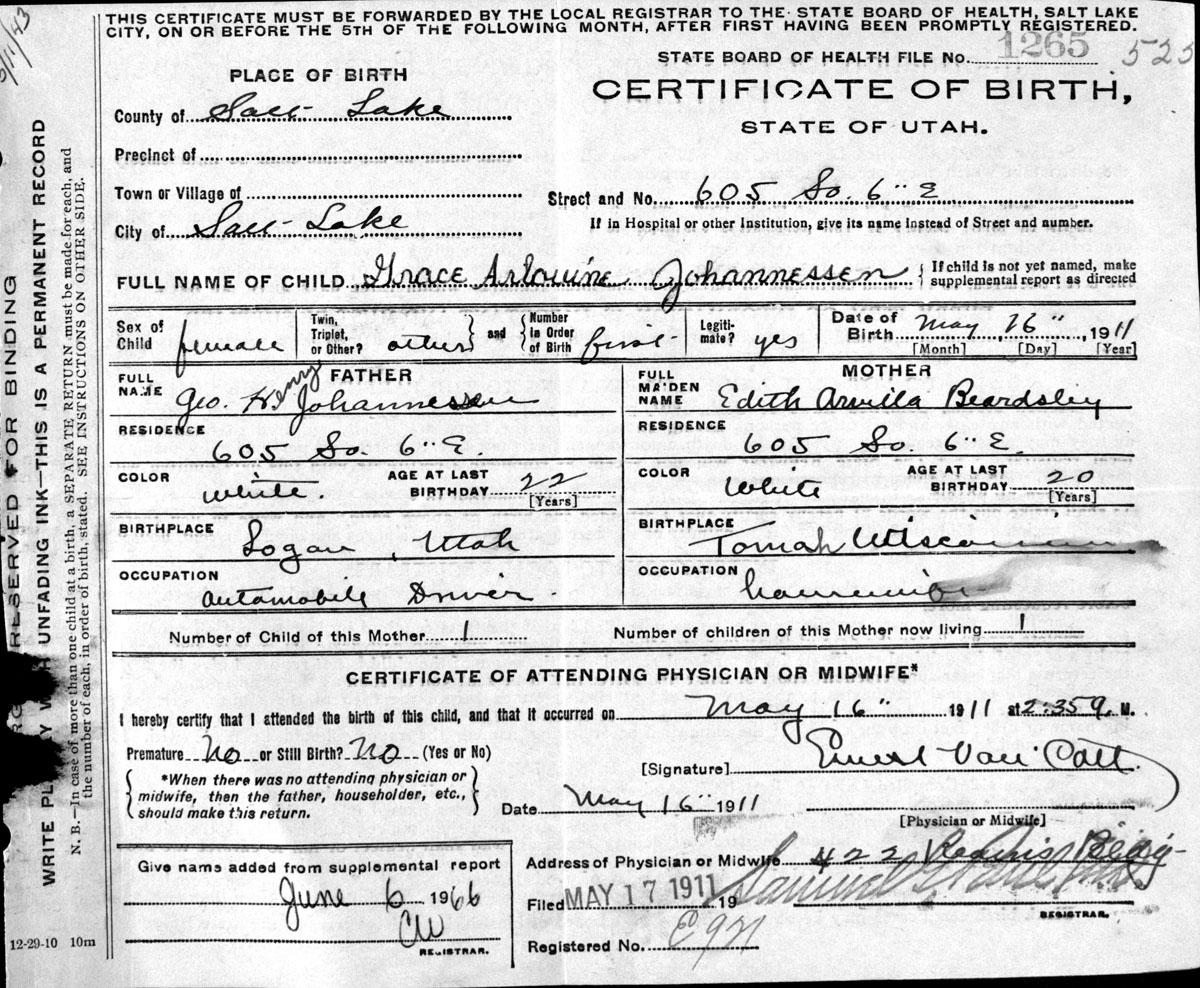 THIS CERTIFICATE MUST BE FORWARDED BY THE LOCAL REGISTRAR TO THE STATE BOARD OF HEALTH, SALT LAKE
CITY, ON OR BEFORE THE 5TH OF THE FOLLOWING MONTH, AFTER FIRST HAVING BEEN PROMPTLY REGISTERED.
STATE BOARD OF HEALTH FILE No. 1265 525
PLACE OF BIRTH
CERTIFICATE OF BIRTH,
STATE OF UTAH.
County of Salt Lake
Precinct of
Town or Village of
Street and No. 605 So. 6" E
City of Salt Lake
If in Hospital or other Institution, give its name instead of Street and number.
FULL NAME OF CHILD Grace Johannessen
If child is not yet named, make supplemental report as directed
Sex of Child female
Twin, Triplet, or Other? other and Number in Order of Birth first
Legitimate? yes
Date of Birth May 16" 1911
[Month] [Day] [Year]
FATHER
FULL NAME Geo. Henry Johannessen
RESIDENCE 605 So. 6" E.
COLOR white. AGE AT LAST BIRTHDAY 22 [Years]
BIRTHPLACE Logan, Utah
OCCUPATION Automobile Driver
MOTHER
FULL MAIDEN NAME Edith Arvilla Beardsley
RESIDENCE 605 So. 6" E.
COLOR White AGE AT LAST BIRTHDAY 20 [Years]
BIRTHPLACE Tomah Wisconsin
OCCUPATION
Number of Child of this Mother 1
Number of children of this Mother now living 1
CERTIFICATE OF ATTENDING PHYSICIAN OR MIDWIFE*
I hereby certify that I attended the birth of this child, and that it occurred on May 16" 1911 at 2:35 M.
Premature No or Still Birth? No (Yes or No)
*When there was no attending physician or
midwife, then the father, householder, etc.,
should make this return.
[Signature] Ernest Van Cott
Date May 16" 1911
[Physician or Midwife]
Give name added from supplemental report
June 6 1966
CW
REGISTRAR.
Address of Physician or Midwife 422
Filed MAY 17 1911 19
REGISTRAR.
Registered No.
12-29-10 10m
RESERVED FOR BINDING
WRITE UNFADING INK—THIS IS A PERMANENT RECORD
N. B.—In case of more than one child at a birth, a SEPARATE RETURN must be made for each, and
the number of each, in order of birth, stated. SEE INSTRUCTIONS ON OTHER SIDE.